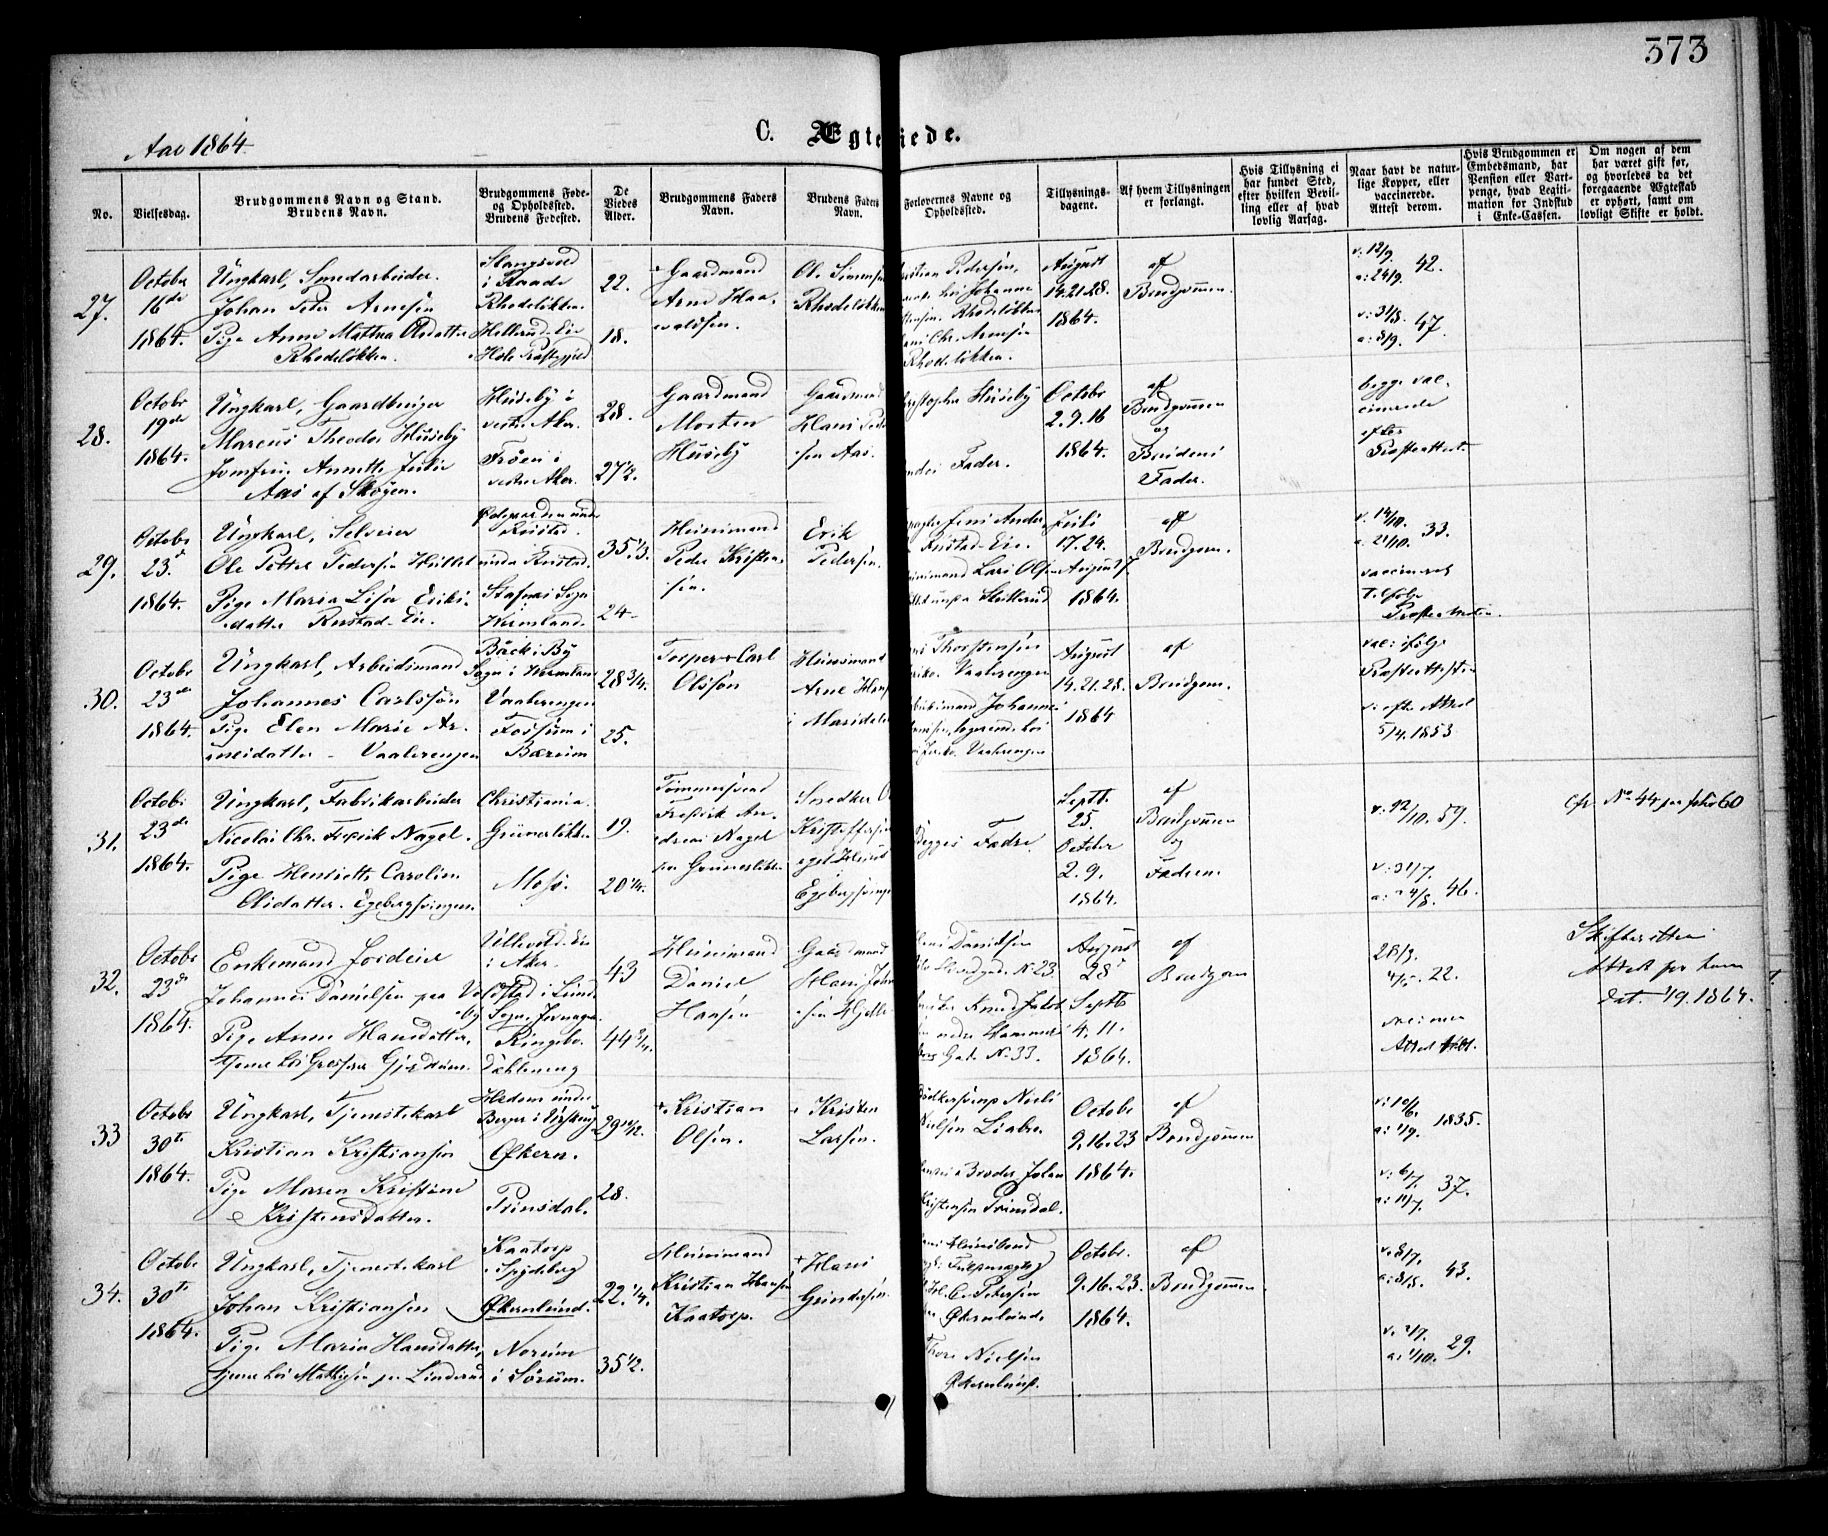 373
Aar 1864.
C. Ægteviede.
No.
Vielsesdag.
Brudgommens Navn og Stand.
Brudens Navn.
Brudgommens Føde-
og Opholdssted.
Brudens Fødested.
De
Viedes
Alder.
Brudgommens Faders
Navn.
Brudens Faders
Navn.
Forlovernes Navne og
Opholdssted.
Tillysnings-
dagene.
Af hvem Tillysningen
er forlangt.
Hvis Tillysning ei
har fundet Sted,
efter hvilken Bevil-
ling eller af hvad
lovlig Aarsag.
Naar havt de natur-
lige Kopper, eller
vaccinerede.
Attest derom.
Hvis Brudgommen er
Embedsmand, har
Pension eller Vart-
penge, hvad Legiti-
mation for Indskud
i Enke-Cassen.
Om nogen af dem
har været gift før,
og hvorledes da det
forrgaaende Ægteskab
er ophørt, samt om
lovligt Skifte er holdt.
27.
October
16de
1864.
Ungkarl, Smedarbeider.
Johan Peter Arnesen
Pige Anne Mathea Olsdatter
Rhodeløkken.
i Raade
Rhodeløkken.
Hellerud Eie
Hole Præstegjeld.
22.
18.
Gaardmand
Arne Haa-
valdsen.
Ole Simensen
Rhodeløkken
Pedersen,
hos Johannes
Rhodeløkken
Chr. Arnesen
Rhodeløkken.
August
14.21.28.
1864.
af
Brudgommen.
v: 12/9.
a: 24/9. 42.
v: 31/8.
a: 8/9. 47.
28.
Octobr
19de
1864.
Ungkarl, Gaardbruger
Marcus Theodor Huseby
Jomfru Annette Julie
Aas af Skøyen.
Huseby i
vestre Aker.
Frøen i
vestre Aker.
28.
27 1/2.
Gaardmand
Morten
Huseby
Gaardmand
Hans Peder
sen Aas.
Christopher Huseby
Fader.
Octobr
2.9.16
1864.
af
Brudgommen
og
Brudens
Fader.
begge vac-
cinerede
efter
Præsteattest.
29.
Octobr
23d
1864.
Ungkarl, Selveier
Ole Petter Pedersen Hullet
Pige Maria Lisa Eriks-
datter Rustad-Eie.
Rustad.
under Rustad.
Stafnes Sogn
Wermland.
35 1/3.
24
Huusmand
Peder Kristian-
sen.
Erik
Pedersen.
Jens Ander
Rustad-Eie.
Huusmand Lars Olsen
Juli
17.24.
August 7
1864.
af
Brudgom.
v. 14/10.
a. 21/10. 33.
vaccineret
Tilfølge
30.
Octobr
23de
1864.
Ungkarl, Arbeidsmand
Johannes Carlssøn
Pige Elen Marie Ar-
nesdatter - Vaalerengen
Bäck i By
Sogn i Wermland
Vaalerengen
Fossum i
Bærum
28 3/4.
25.
Torper Carl
Olssøn
Huusmand
Arne Hans
i Maridalen
Thorstensen
Vaalerengen
Johannes
logerende hos
Vaalerengen
August
14.21.28.
1864
af
Brudgom.
vac: ifølge
Præsteattest
v: efter Attest
5/4. 1853
31.
Octobr
23de
1864.
Ungkarl, Fabrikarbeider
Nicolai Chr. Fredrik Nagel.
Pige Henriette Caroline
Olsdatter. Egebergsvingen.
Christiania.
Grünerløkken.
Moss.
19.
20 1/4.
Tømmersvend
Fredrik An-
dreas Nagel
paa Grünerløkken
Snedker O
Kristoffersen
eget Huus
Egebergsvingen
Begges Fædre.
Septb.
25.
October
2. 9.
1864.
af
Brudgommen
og
Fædrene
v: 22/10. 59.
v: 31/7.
a: 4/8. 46.
cfr No 44 paa folio 60
32.
Octobr
23de
1864.
Enkemand Jordeier
Johannes Danielsen paa Vol
Pige Anne Hansdatter,
tjener hos Grosserer Gjerdrum.
Ullevold-Eie
i Aker.
Ringebo.
43
44 3/4.
Huusmand
Daniel
Hansen
Gaardmand
Hans Johan
sen Hjelle
Danielsen
No. 23.
Knud Jakob
Hammers
Gade No. 33.
August
28d
Septb
4. 11.
1864.
af
Brudgom
28/3.
22.
Attest
Skifteretten
Attest per ham
dat. 1/9.1864.
33
Octobr
30te
1864.
Ungkarl, Tjenestekarl
Kristian Kristiansen
Pige Maren Kristine
Kristensdatter.
Berger i Urskoug
Økern.
Prinsdal.
29 1/2.
28.
+ Kristian
Olsen.
+ Kristen
Larsen.
Niels
Nielsen Liabro.
Broder Johan
Kristensen Prinsdal.
Octobr
9.16.23
1864.
af
Brudgommen
v: 10/6.
a: 1/9. 1835.
v: 6/7.
a: 11/7. 37.
34.
Octobr
30te
1864.
Ungkarl, Tjenestekarl
Johan Kristiansen
Pige Maria Hansdatter,
tjener hos Mathisen paa Linderud
Kaatorp
i Spydeberg
Økernlund.
Norum
i Sørum.
22. 1/4.
35 1/2.
Huusmand
Kristian Hansen
Kaatorp.
+ Hans
Gundersen
Petersen
Økernlund.
Thore Nielsen
Octobr.
9.16.23.
1864.
af
Brudgommen.
v. 8/7.
a: 8/8. 43.
v. 2/7.
a: 1/10. 29.